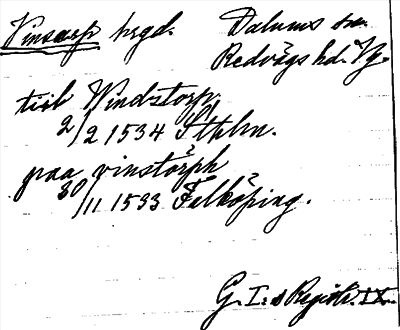 Vinsarp hrgd. Dalums sn.
Redvägs hd. Vg.
till Windstorp
2/2 1534 Sthlm.
paa vinstörph
30/11 1533 Falköping.
G. I:s Registr. IX.